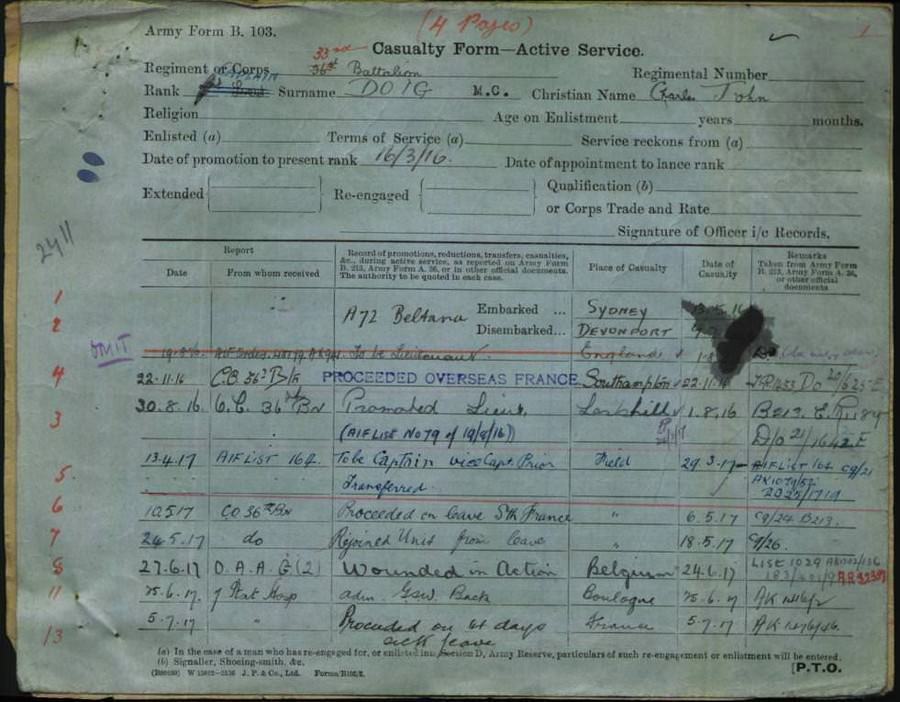 (4 Pages)
Army Form B. 103.
1
Casualty Form—Active Service.
33rd
Regiment or Corps 36st Battalion Regimental Number
Rank Surname DOIG M.C. Christian Name Charles John
Religion Age on Enlistment years months.
Enlisted (a) Terms of Service (a) Service reckons from (a)
Date of promotion to present rank 16/3/16. Date of appointment to lance rank
Extended Re-engaged Qualification (b)
or Corps Trade and Rate
Signature of Officer i/c Records.
2411
Report
Date From whom received
Record of promotions, reductions, transfers, casualties,
&c., during active service, as reported on Army Form
B. 213, Army Form A. 36, or in other official documents.
The authority to be quoted in each case.
Place of Casualty
Date of
Casualty
Remarks
Taken from Army Form
B. 213, Army Form A. 36,
or other official
documents
1 A72 Beltana Embarked ... SYDNEY
2 Disembarked... DEVONPORT
OMIT To be Lieutenant. England
4 22-11-16 C.O. 36th Bn PROCEEDED OVERSEAS FRANCE Southampton 22-11-16
3 30.8.16 O.C. 36th Bn Promoted Lieut Larkhill 1.8.16 B213.
(AIF LIST No 79 of 19/8/16) D/o 21/1642E
5 13.4.17 AIF LIST 164. To be Captain vice Capt. Prior Field 29.3.17 AIF LIST 164 C9/21
Transferred.
6 10.5.17 CO 36th Bn Proceeded on leave Sth France " 6.5.17 C9/24 B213.
7 24.5.17 do Rejoined Unit from leave " 18.5.17 9/26.
8 27.6.17 D.A.A.G (2) Wounded in Action Belgium 24.6.17 LIST 1029
11 25.6.17 7 Stat Hosp adm. Gsw. Back Boulogne 25.6.17
13 5.7.17 " Proceeded on 61 days France 5.7.17
sick leave
(a) In the case of a man who has re-engaged for, or enlisted into Section D, Army Reserve, particulars of such re-engagement or enlistment will be entered.
(b) Signaller, Shoeing-smith, &c.
J. P. & Co., Ltd. [P.T.O.